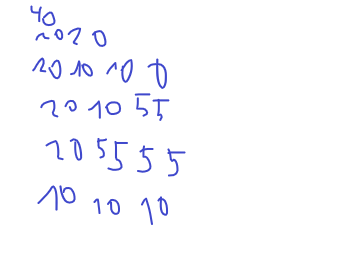 40
20 20
20 10 10 0
20 10 5 5
20 5 5 5 5
10 10 10